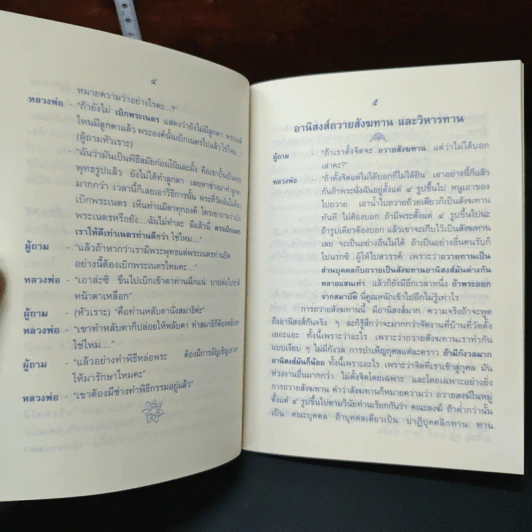 ๔
หมายความว่าอย่างไรคะ...?"
หลวงพ่อ - "ถ้ายังไม่ เบิกพระเนตร แสดงว่ายังไม่มีลูกตา พระองค์
ไหนมีลูกตาแล้ว พระองค์นั้นเบิกเนตรไปแล้ว ใช่ไหม...
(ผู้ถามหัวเราะ)
- "ฉันว่ามันเป็นพิธีสมัยก่อนโน้นละมั้ง คือเขาปั้น
พุทธรูปแล้ว ยังไม่ได้ทำลูกตา เลยหาช่าง
มากกว่า เวลานี้ก็เลยเอาวิธีการนั้น
เบิกพระเนตร เห็นท่านมีตาทุกองค์
พระเนตรหรือยัง...ฉันไม่ทำละ มีแล้วนี่
เราให้ดีเท่าเนตรท่านดีกว่า ใช่ไหม..."
ผู้ถาม - "แล้วถ้าหากว่าเรามีพระพุทธแต่พระเนตรท่านปิด
อย่างนี้ต้องเบิกพระเนตรไหมคะ..."
หลวงพ่อ - "เอาล่ะซิ ขืนไปเบิกเข้าตาท่านฉีกแน่
หน้าตาเหลือก"
ผู้ถาม - (หัวเราะ) "คือท่านหลับตานั่งสมาธิค่ะ"
หลวงพ่อ - "เขาทำหลับตาก็ปล่อยให้หลับตา ทำสมาธิก็ต้องหลับตา
ใช่ไหม..."
ผู้ถาม - "แล้วอย่างทำพิธีหล่อพระ ต้องมีการอัญเชิญเทวดา
ให้มารักษาไหมคะ"
หลวงพ่อ - "เขาต้องมีช่างทำพิธีกรรมอยู่แล้ว"
๕
อานิสงส์ถวายสังฆทาน และวิหารทาน
ผู้ถาม - "ถ้าเราตั้งจิตจะ ถวายสังฆทาน แต่ว่าไม่ได้บอก
เล่าคะ?"
หลวงพ่อ - "ถ้าตั้งจิตแต่ไม่ได้บอกก็ไม่ได้ยิน เอาอย่างนี้ก็แล้ว
กันถ้าพระนั่งฉันอยู่ตั้งแต่ ๔ รูปขึ้นไป หนูเอาของ
ไปถวาย เอาน้ำไปถวายถ้วยเดียวก็เป็นสังฆทาน
ทันที ไม่ต้องบอก ถ้ามีพระตั้งแต่ ๔ รูปขึ้นไปนะ
ถ้ารูปเดียวต้องบอก แล้วเราจะเก็บไว้เป็นสังฆทาน
เลย จะเป็นอย่างอื่นไม่ได้ ถ้าเป็นอย่างอื่นคนรับก็
ไปนรกซิ ผู้ให้ไปสวรรค์ เพราะว่าถวายทานเป็น
ส่วนบุคคลกับถวายเป็นสังฆทานอานิสงส์มันต่างกัน
หลายแสนเท่า แล้วก็ยังมีอีกเวลาหนึ่ง ถ้าพระออก
จากสมาบัติ นี่คูณหนักเข้าไปอีกไม่รู้เท่าไร
การถวายสังฆทานนี่ มีอานิสงส์มาก ความจริงถ้าจะพูด
ถึงอานิสงส์กันจริง ๆ ละก็รู้สึกว่าจะมากกว่าจัดงานที่บ้านที่วัดตั้ง
เยอะแยะ ทั้งนี้เพราะว่าอะไร เพราะว่าถวายสังฆทานเราทำกัน
แบบเงียบ ๆ ไม่มีกังวล การบำเพ็ญกุศลแต่ละคราว ถ้ามีกังวลมาก
อานิสงส์มันก็น้อย ทั้งนี้เพราะอะไร เพราะว่าจิตที่เราเข้าสู่กุศล มัน
ห่วงงานอื่นมากกว่า ไม่ตั้งจิตโดยเฉพาะ และโดยเฉพาะอย่างยิ่ง
การถวายสังฆทาน คำว่าสังฆทานก็หมายความว่า ถวายสงฆ์ในหมู่
ตั้งแต่ ๔ รูปขึ้นไปตามวินัยท่านเรียกกันว่า คณะสงฆ์ ถ้าต่ำกว่านั้น
เป็น คณะบุคคล ถ้าบุคคลเดียวเป็น ปาฏิปุคคลิกทาน ทาน